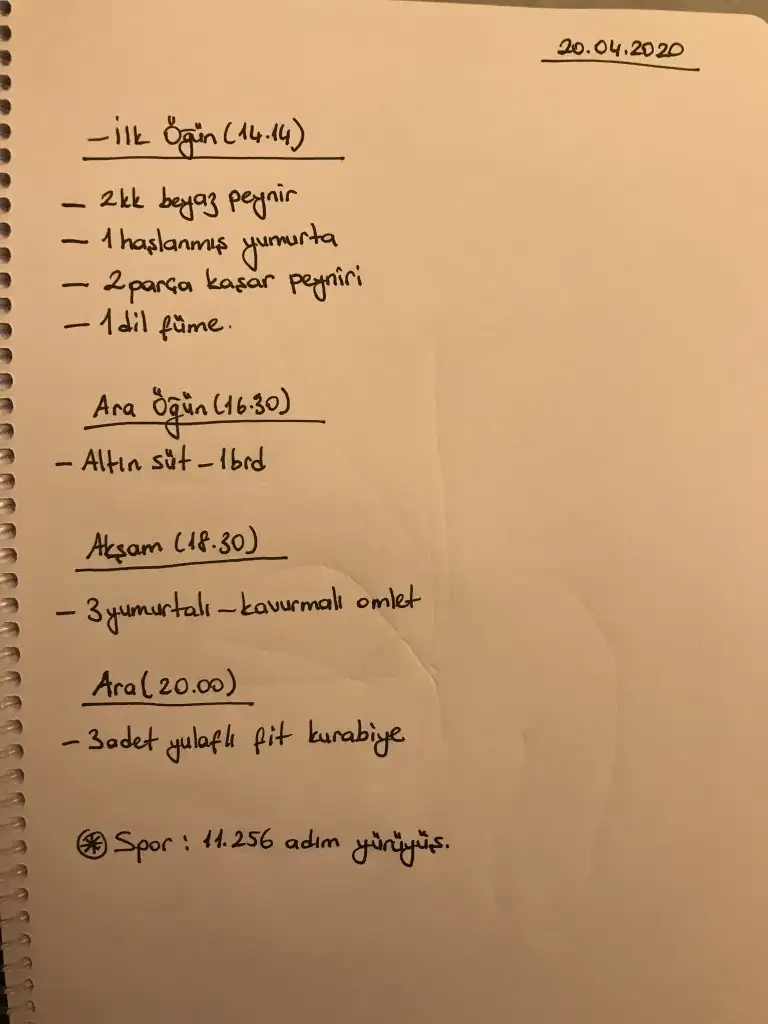 20.04.2020
- İlk Öğün (14.14)
- 2kk beyaz peynir
- 1 haşlanmış yumurta
- 2 parça kaşar peyniri
- 1 dil füme.
Ara Öğün (16.30)
- Altın süt - 1 brd
Akşam (18.30)
- 3 yumurtalı - kavurmalı omlet
Ara (20.00)
- 3 adet yulaflı fit kurabiye
⊛ Spor : 11.256 adım yürüyüş.